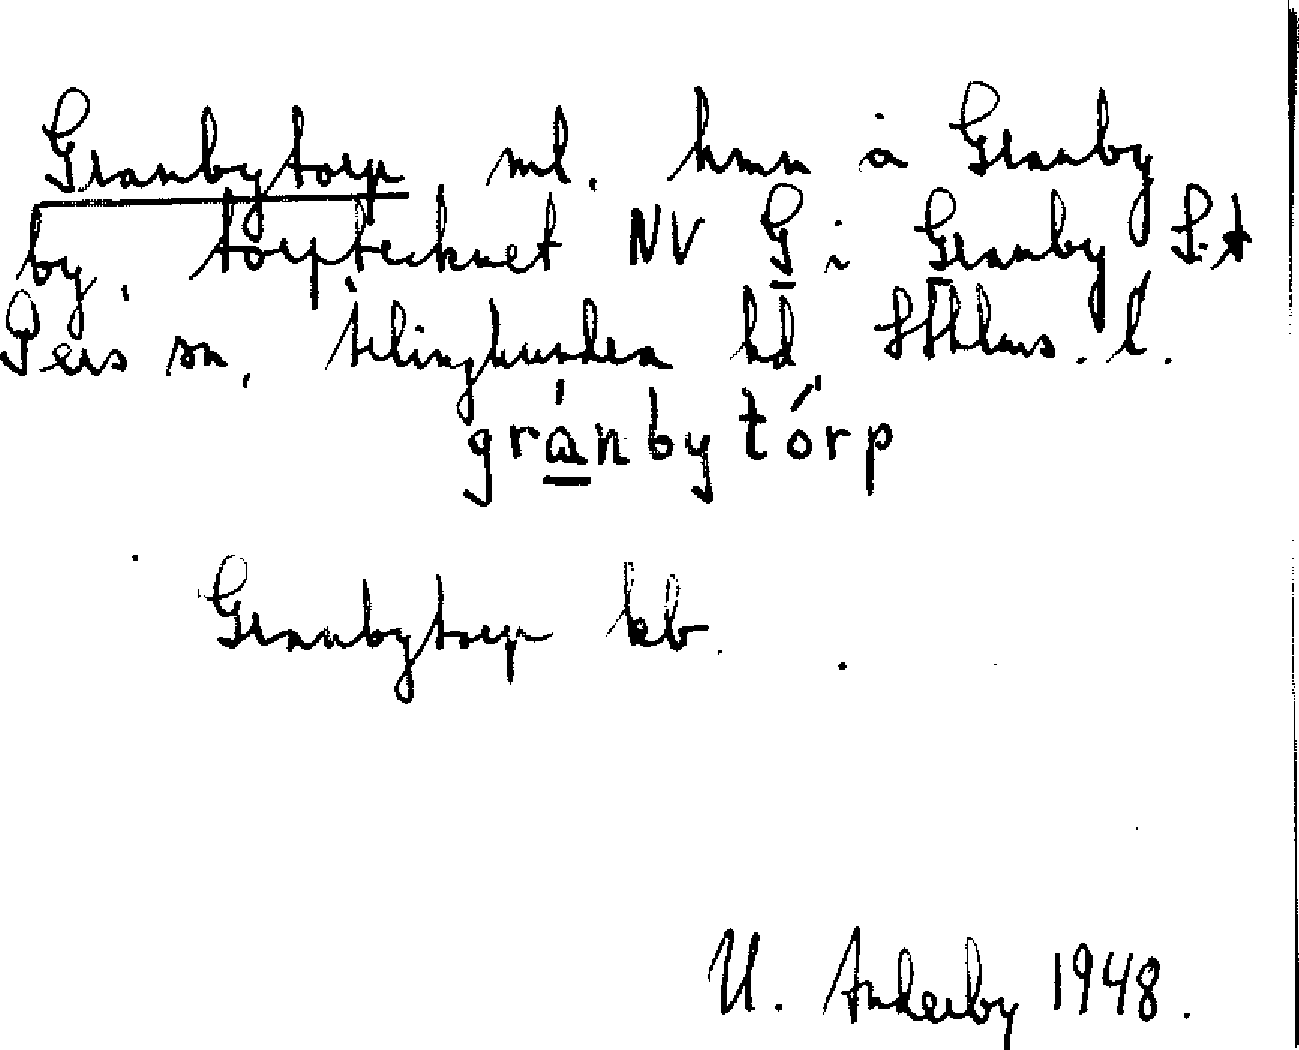 Granbytorp ml. hmn å Granby
by, torptecknet NV G i Granby S:t
Pers sn, Ärlinghundra hd Sthlms. l.
gránbytórp
Granbytorp kb.
U. 1948.